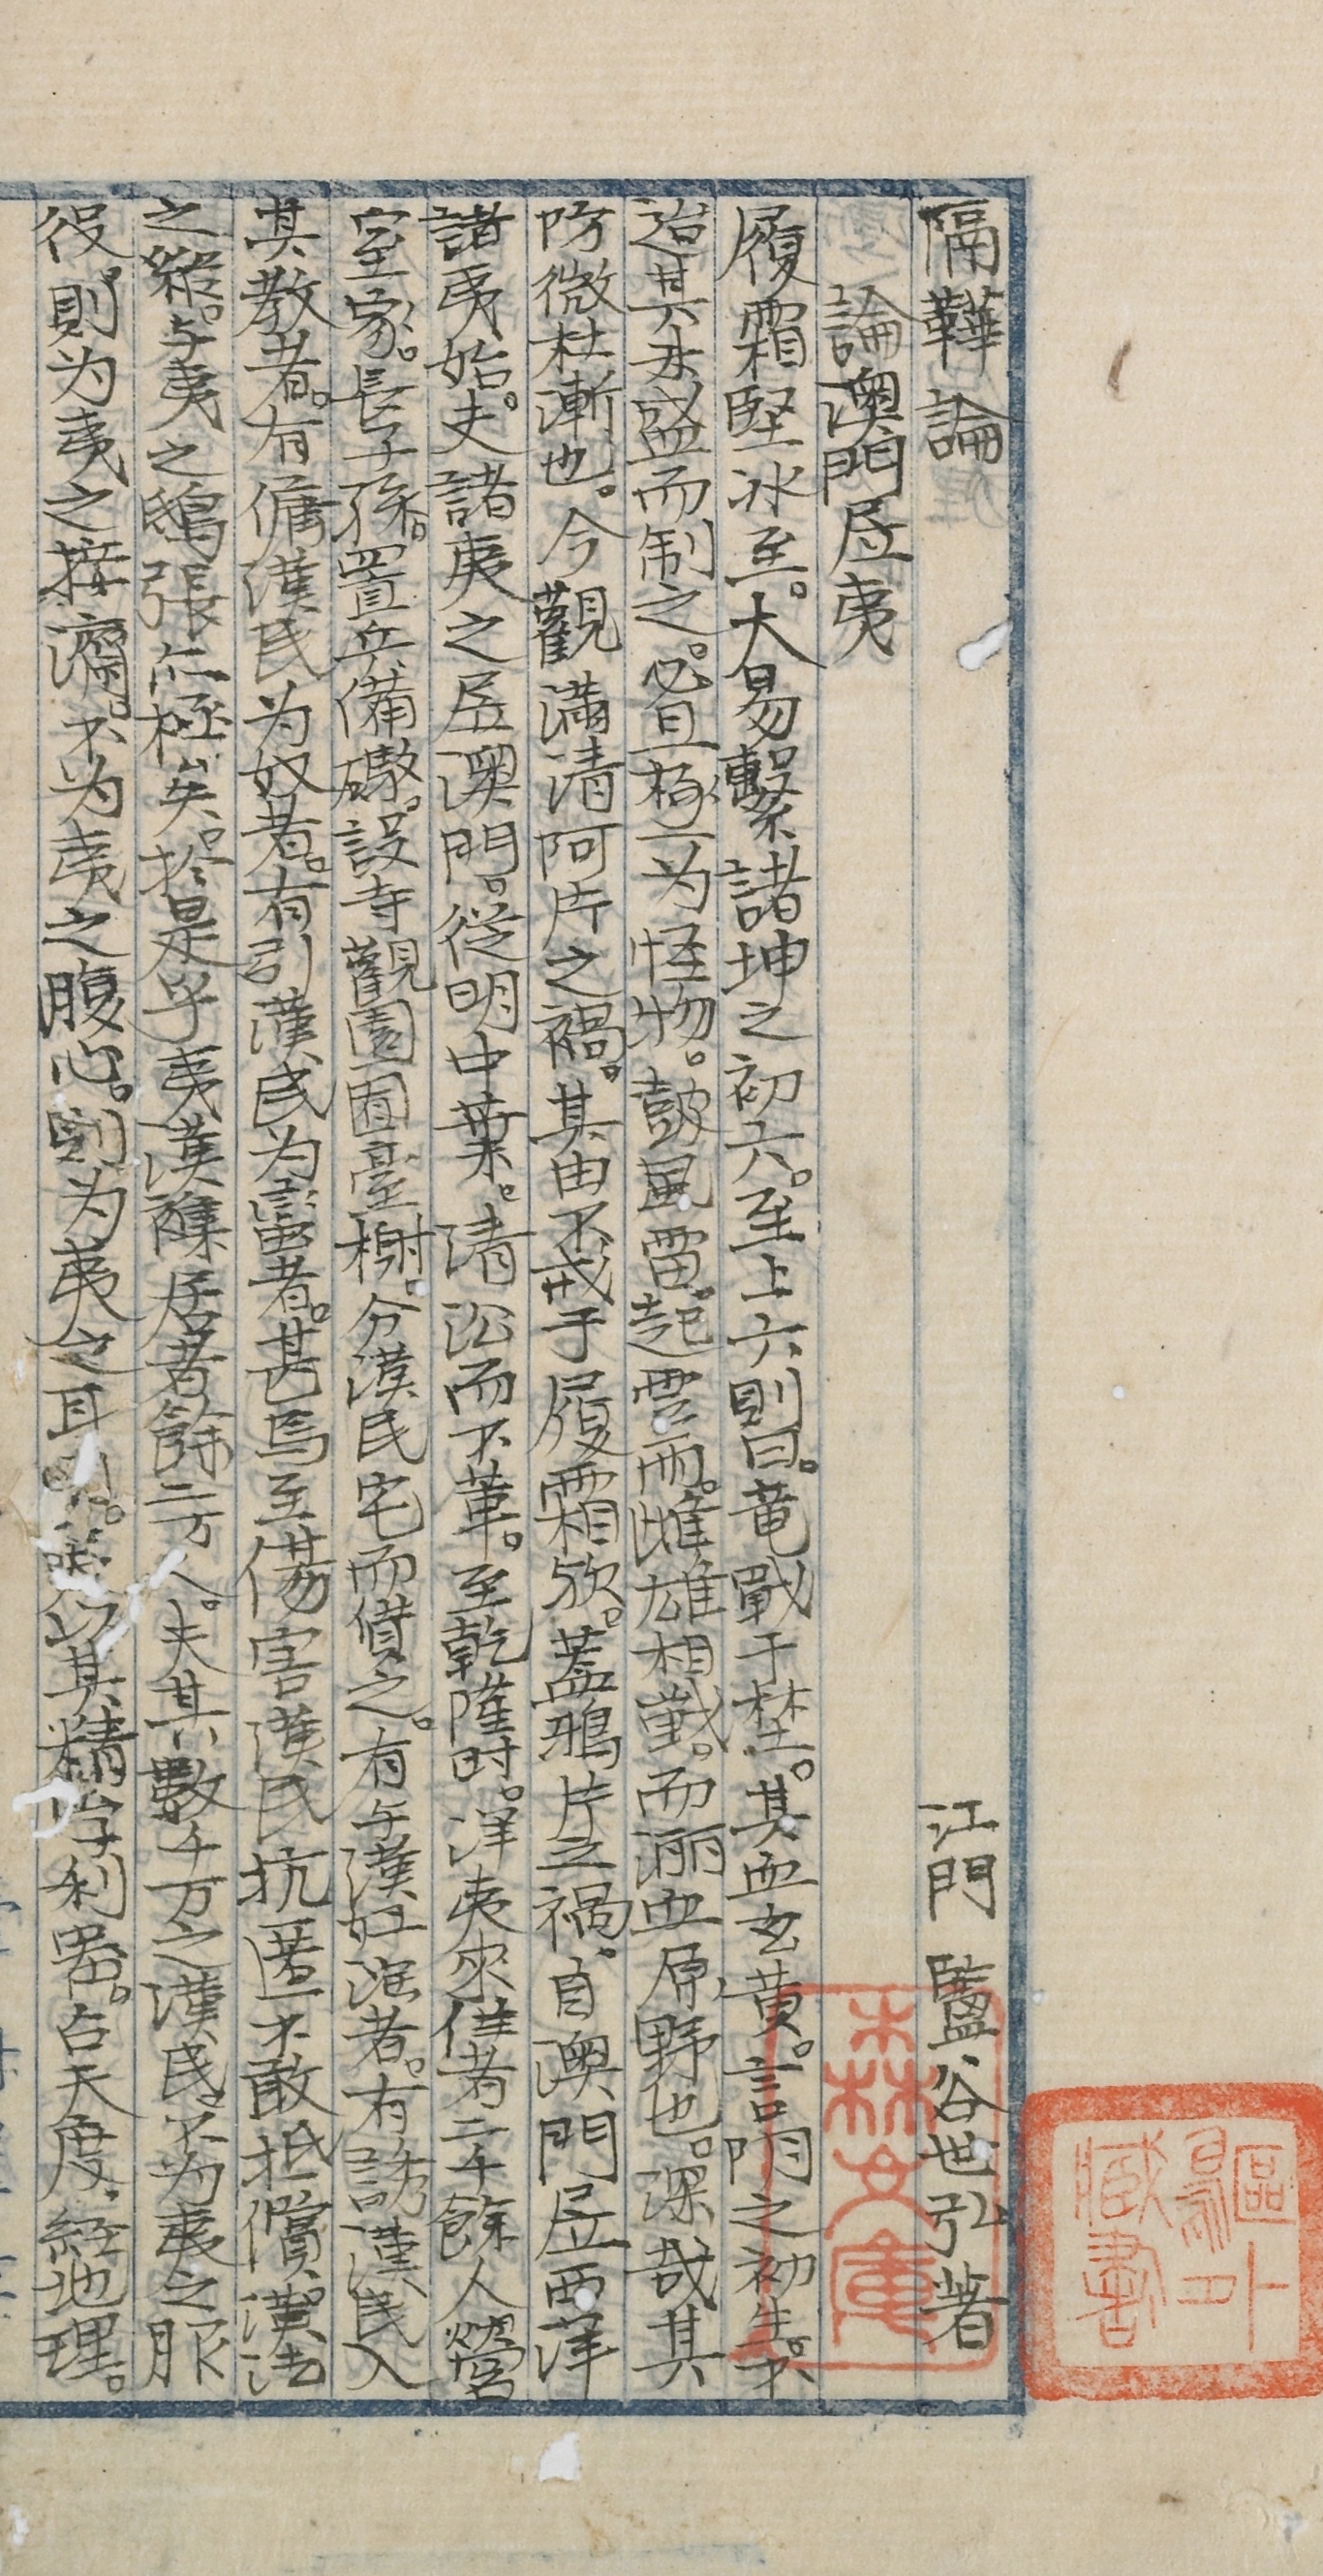 隔鞾論　江門　鹽谷世弘著
論澳門居夷
履霜堅冰至。大易繫諸坤之初六。至上六則曰。竜戰于埜。其血玄黃。言陰之初生。不
迨其未盛而制之。必且極為怪物。鼓風雷。起雲雨。雌雄相戰。而洒血原野也。深哉其
防微杜漸也。今觀滿清阿片之禍。其由不戒于履霜欤。蓋鴉片之禍。自澳門居西洋
諸夷始。夫諸夷之居澳門。從明中葉。清沿而不革。至乾隆时。洋夷來住者二千餘人。營
室家。長子孫。置兵備礮。設寺觀園囿臺榭。分漢民宅而賃之。有与漢奸混者。有誘漢民入
其教者。有傭漢民为奴者。有引漢民为蠹者。甚焉至傷害漢民抗匿不敢抵償。漢法
之縱。与夷之鴟張亦極矣。於是乎夷漢雜居者餘二万人。夫其數千万之漢民。不为夷之服
役。則为夷之接濟。不为夷之腹心。則为夷之耳目。以其精利器。占天度。経地理。